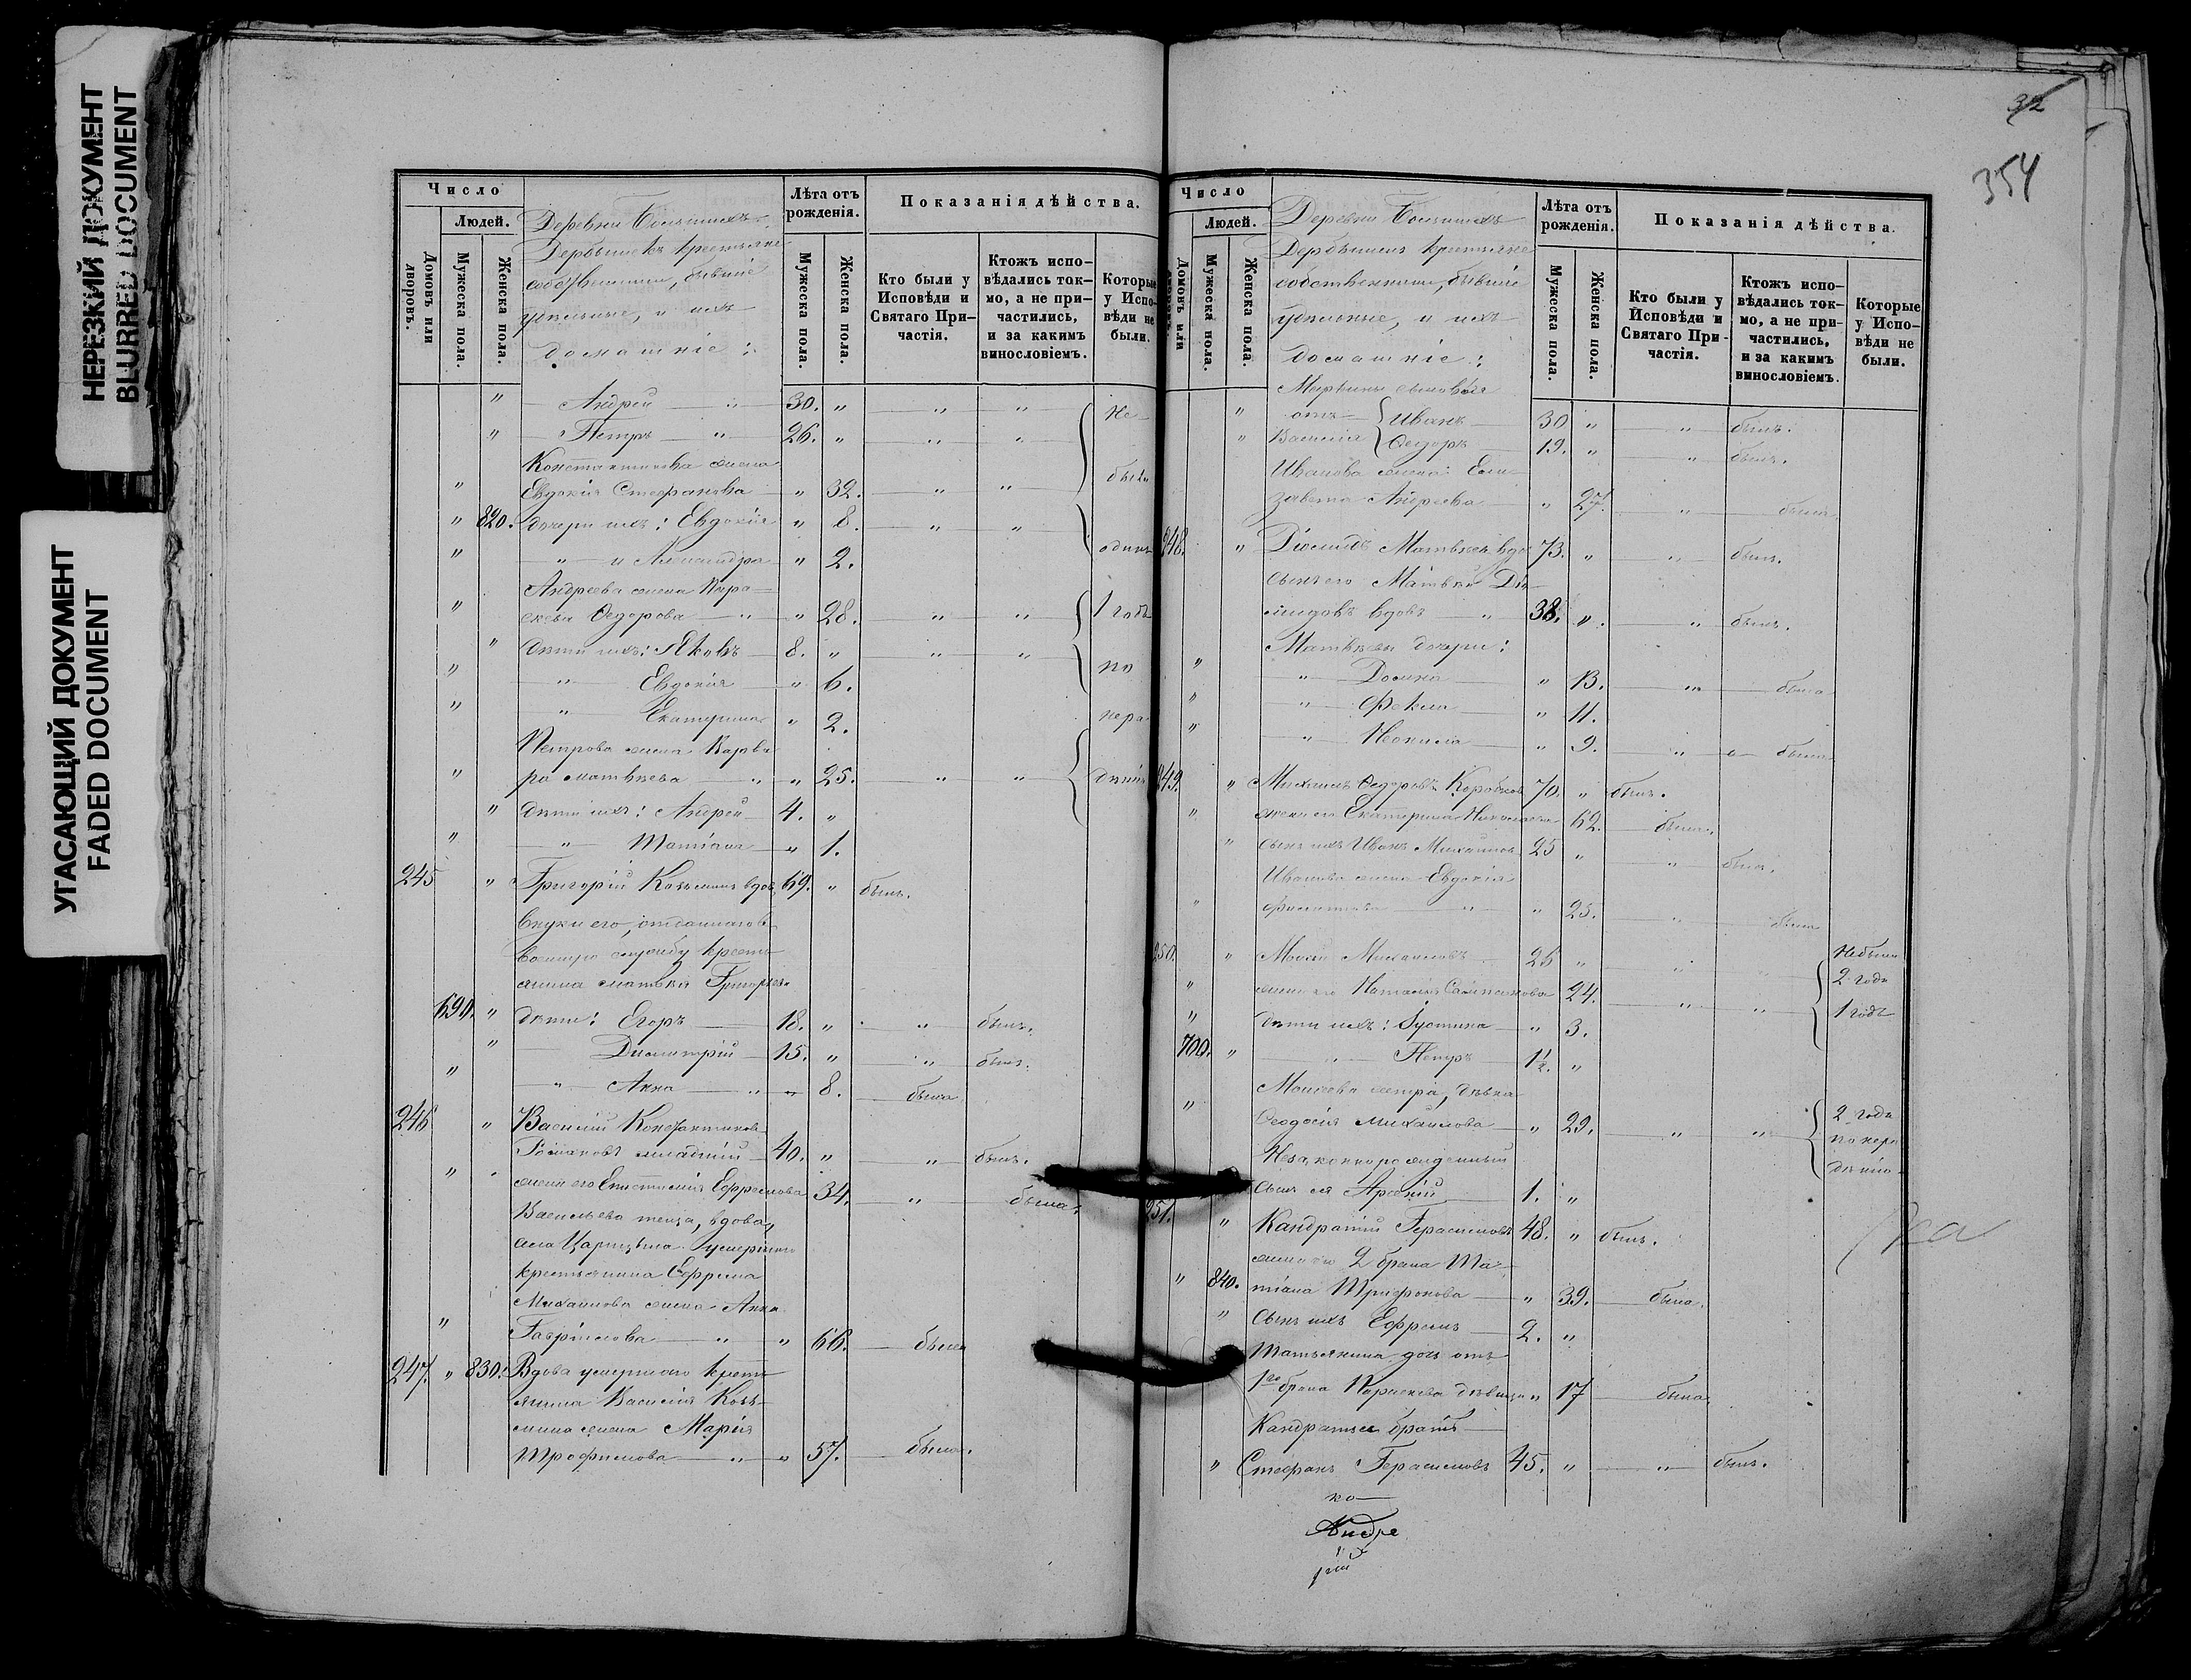 НЕРЕЗКИЙ ДОКУМЕНТ
BLURRED DOCUMENT
УГАСАЮЩИЙ ДОКУМЕНТ
FADED DOCUMENT
Число
Людей.
Домовъ или дворовъ.
Мужеска пола.
Женска пола.
Деревни Большихъ
Дербышекъ крестьяне
собственники, бывшіе
удѣльные, и ихъ
домашніе:
Лѣта отъ рожденія.
Мужеска пола.
Женска пола.
Показанія дѣйства.
Кто были у Исповѣди и Святаго Причастія.
Ктожъ исповѣдались токмо, а не причастились, и за какимъ винословіемъ.
Которые у Исповѣди не были.
" Андрей — " — 30. " " " Не
" Петръ — " — 26. " " "
Константинова жена
" Евдокія Стефанова " 32. " " были
" 820. дочери ихъ: Евдокія " 8. " "
" " и Александра " 2. одинъ
Андреева жена Пара-
" скева Ѳедорова — " " 28. " " 1 годъ
" дѣти ихъ: Яковъ 8. " " " по
" " Евдокія " 6.
" " Екатерина " 2. нера
Петрова жена Варва
" ра Матвѣева — " " 25. " " дѣнію
" дѣти ихъ: Андрей 4. "
" " Татіана " 1.
245 " Григорій Козьминъ вдов 69. " былъ.
Внуки его, отданнаго въ
военную службу кресть
янина Матвѣя Григорьева
690. " дѣти: Егоръ — 18. " " былъ.
" Димитрій — 15. " " былъ.
" " Анна — " " 8. была
246 " Василій Константиновъ
Романовъ младшій 40. " " былъ.
" жена его Епистимія Ефремова 34. " была.
Васильева теща, вдова,
села Царицына умершаго
крестьянина Ефрема
Михайлова жена Анна
" Гаврилова — " " 66. была
247. " 830. Вдова умершаго кресть
янина Василія Козь-
мина жена Марія
Трофимова — " " 57. была.
32
354
Число
Людей.
Домовъ или дворовъ.
Мужеска пола.
Женска пола.
Деревни Большихъ
Дербышекъ крестьяне
собственники, бывшіе
удѣльные, и ихъ
домашніе:
Лѣта отъ рожденія.
Мужеска пола.
Женска пола.
Показанія дѣйства.
Кто были у Исповѣди и Святаго Причастія.
Ктожъ исповѣдались токмо, а не причастились, и за какимъ винословіемъ.
Которые у Исповѣди не были.
Марьины сыновья
" отъ Иванъ 30 " " былъ.
" Василія Ѳедоръ 19. " " былъ.
Иванова жена: Ели-
завета Андреева " 27. " была
248. " Діомидъ Матвѣевъ вдов 73. " " былъ.
Сынъ его Матвѣй Діо-
мидовъ вдовъ — " 38. " " былъ.
Матвѣевы дочери:
" " Домна " 13. " была
" " Фекла " 11.
" " Неонила " 9. " была
249. " Михаилъ Ѳедоровъ Коробков 70. " былъ.
" жена его Екатерина Николаева 62. была.
" сынъ ихъ Иванъ Михайловъ 25 " " былъ.
Иванова жена Евдокія
" Филиппова " " 25. " была
250. " Моисей Михайловъ 26 " " " Не были
" жена его Наталія 24. " " 2 года
" дѣти ихъ: Іустина " 3. 1 годъ
700. " " Петръ 1½. "
Моисеева сестра, дѣвка
" Ѳеодосія Михайлова " 29. " " 2 года
Незаконнорожденный по нера
сынъ ея Арсеній 1. " дѣнію
251. " Кандратій Герасимовъ 48. " былъ.
жена его 2 брака Та-
" 840. тіана Трифонова " 39. была.
" Сынъ ихъ Ефремъ 2. "
Татьянина дочь отъ
1го брака Параскева дѣвица " 17 была
Кандратья братъ
" Стефанъ Герасимовъ 45. " " былъ.
ко
Андре
рій